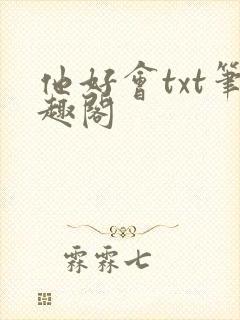 他好會txt筆
趣閣
霖霖七